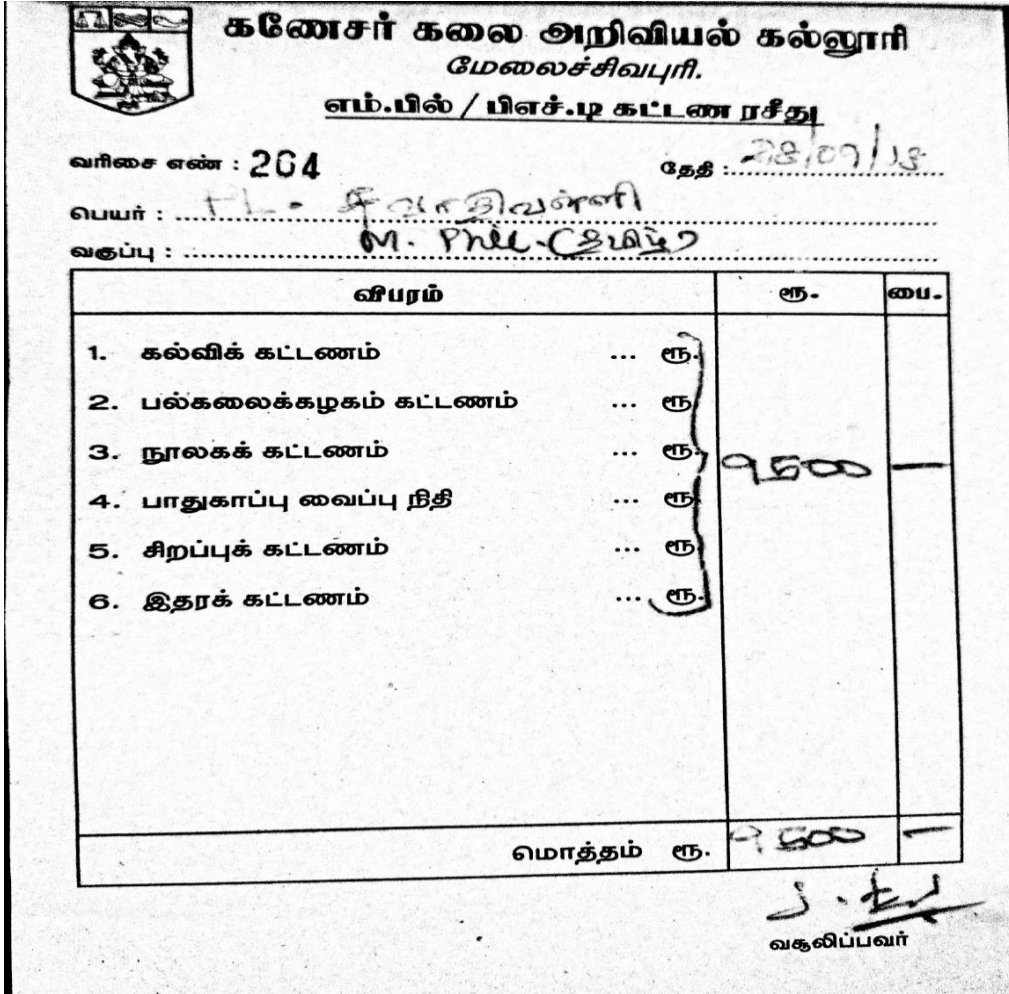 கணேசர் கலை அறிவியல் கல்லூரி
மேலைச்சிவபுரி.
எம்.பில் / பிஎச்.டி கட்டண ரசீது
வரிசை எண் : 204
தேதி : 28/09/18
பெயர் :
வகுப்பு : M. Phil. (தமிழ்)
விபரம் ரூ. பை.
1. கல்விக் கட்டணம் ... ரூ.
2. பல்கலைக்கழகம் கட்டணம் ... ரூ
3. நூலகக் கட்டணம் ... ரூ. 9500 —
4. பாதுகாப்பு வைப்பு நிதி ... ரூ
5. சிறப்புக் கட்டணம் ... ரூ
6. இதரக் கட்டணம் ... ரூ.
மொத்தம் ரூ. 9500 —
வசூலிப்பவர்